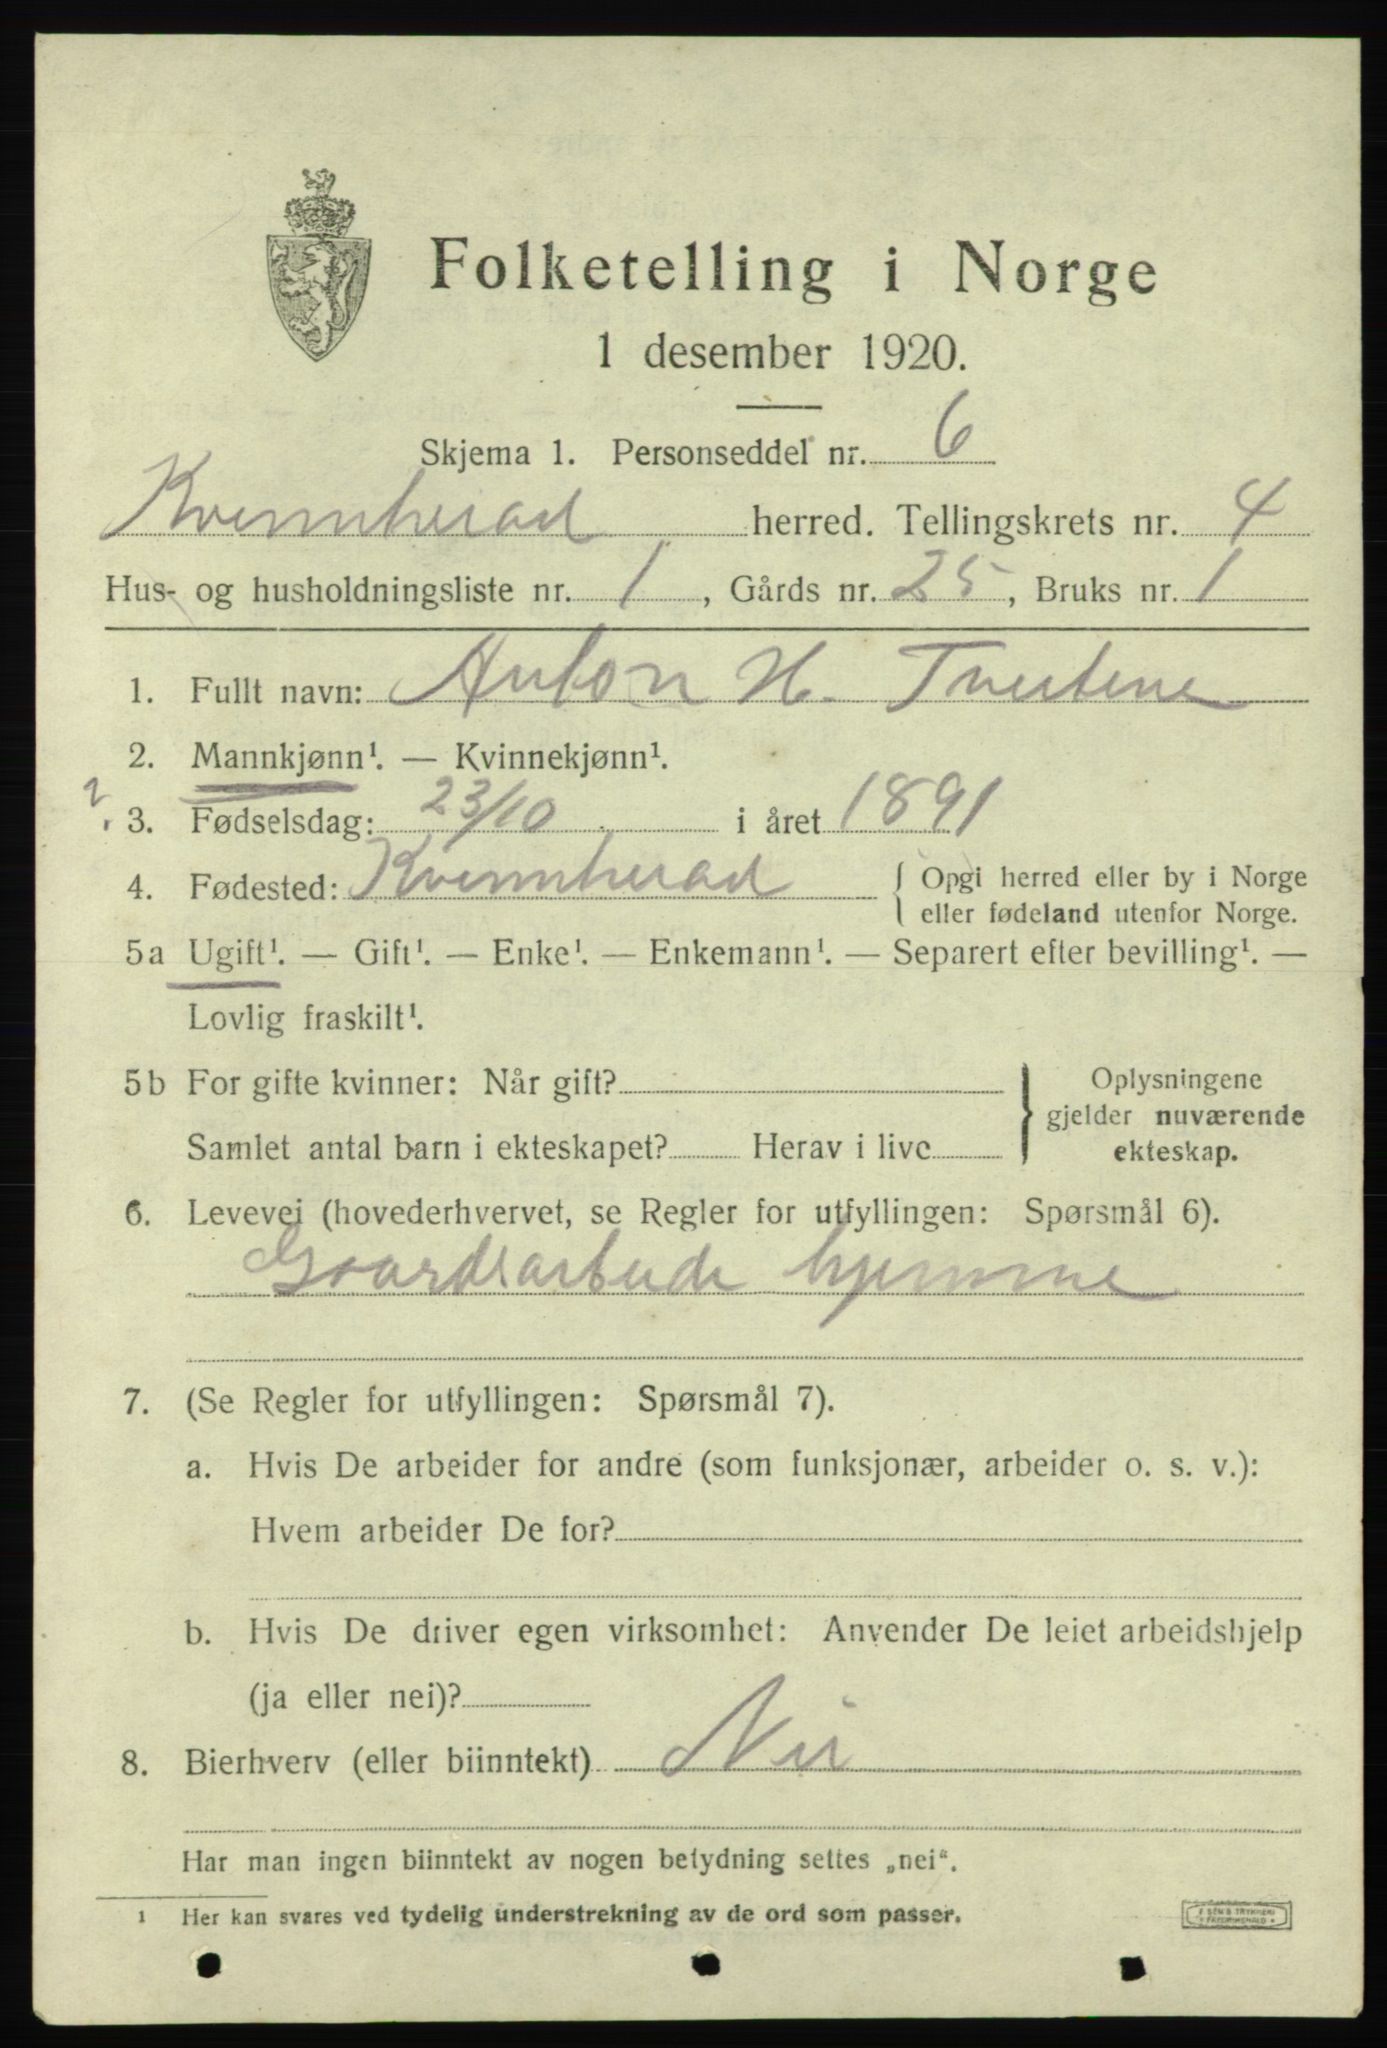 Folketelling i Norge
1 desember 1920.
Skjema 1. Personseddel nr. 6
Kvinnherad herred. Tellingskrets nr. 4
Hus- og husholdningsliste nr. 1, Gårds nr. 25, Bruks nr. 1
1. Fullt navn: Anton H. Tveitene
2. Mannkjønn¹. — Kvinnekjønn¹.
2
3. Fødselsdag: 23/10 i året 1891
4. Fødested: Kvinnherad { Opgi herred eller by i Norge
eller fødeland utenfor Norge.
5a Ugift¹. — Gift¹. — Enke¹. — Enkemann¹. — Separert efter bevilling¹. —
Lovlig fraskilt¹.
5b For gifte kvinner: Når gift?
Samlet antal barn i ekteskapet? Herav i live
} Oplysningene
gjelder nuværende
ekteskap.
6. Levevei (hovederhvervet, se Regler for utfyllingen: Spørsmål 6).
Gaardsarbeide hjemme
7. (Se Regler for utfyllingen: Spørsmål 7).
a. Hvis De arbeider for andre (som funksjonær, arbeider o. s. v.):
Hvem arbeider De for?
b. Hvis De driver egen virksomhet: Anvender De leiet arbeidshjelp
(ja eller nei)?
8. Bierhverv (eller biinntekt) Nei
Har man ingen biinntekt av nogen betydning settes „nei“.
1 Her kan svares ved tydelig understrekning av de ord som passer.